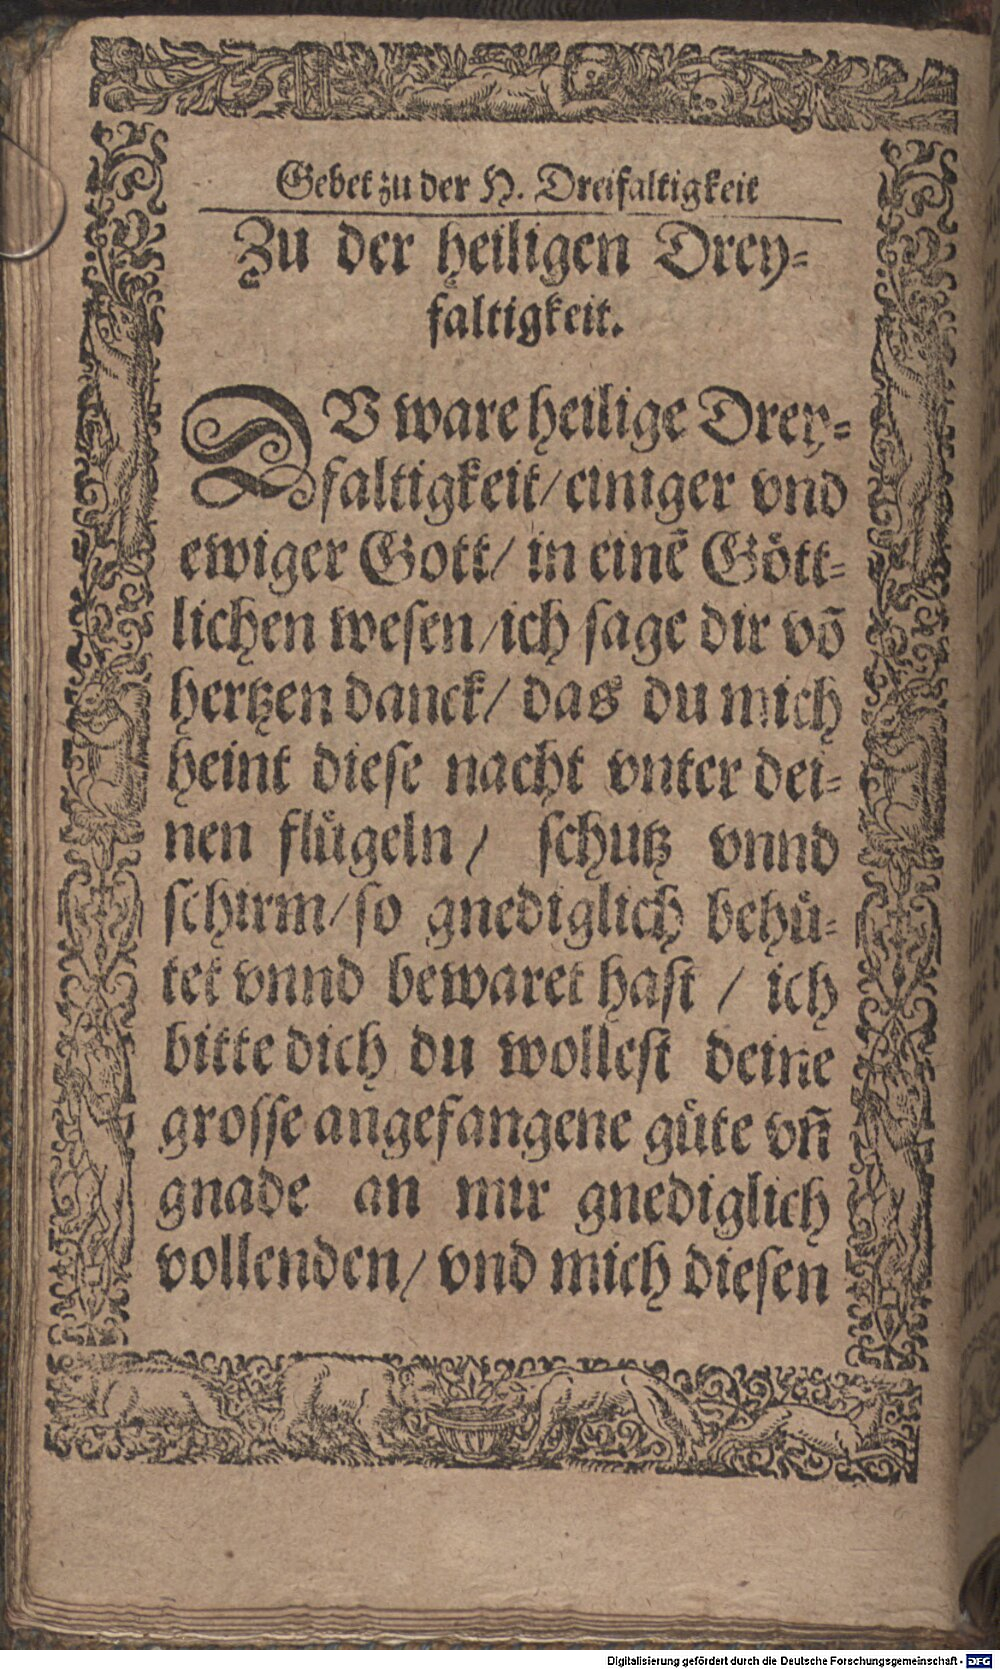 Gebet zu der H. Dreifaltigkeit
Zu der heiligen Drey-
faltigkeit.
DV ware heilige Drey-
faltigkeit/ einiger vnd
ewiger Gott/ in einē Goͤtt-
lichen wesen/ ich sage dir võ
hertzen danck/ das du mich
heint diese nacht vnter dei-
nen fluͤgeln/ schutz vnnd
schirm/ so gnediglich behuͤ-
tet vnnd bewaret hast / ich
bitte dich du wollest deine
grosse angefangene guͤte vñ
gnade an mir gnediglich
vollenden/ vnd mich diesen
Digitalisierung gefördert durch die Deutsche Forschungsgemeinschaft - DFG